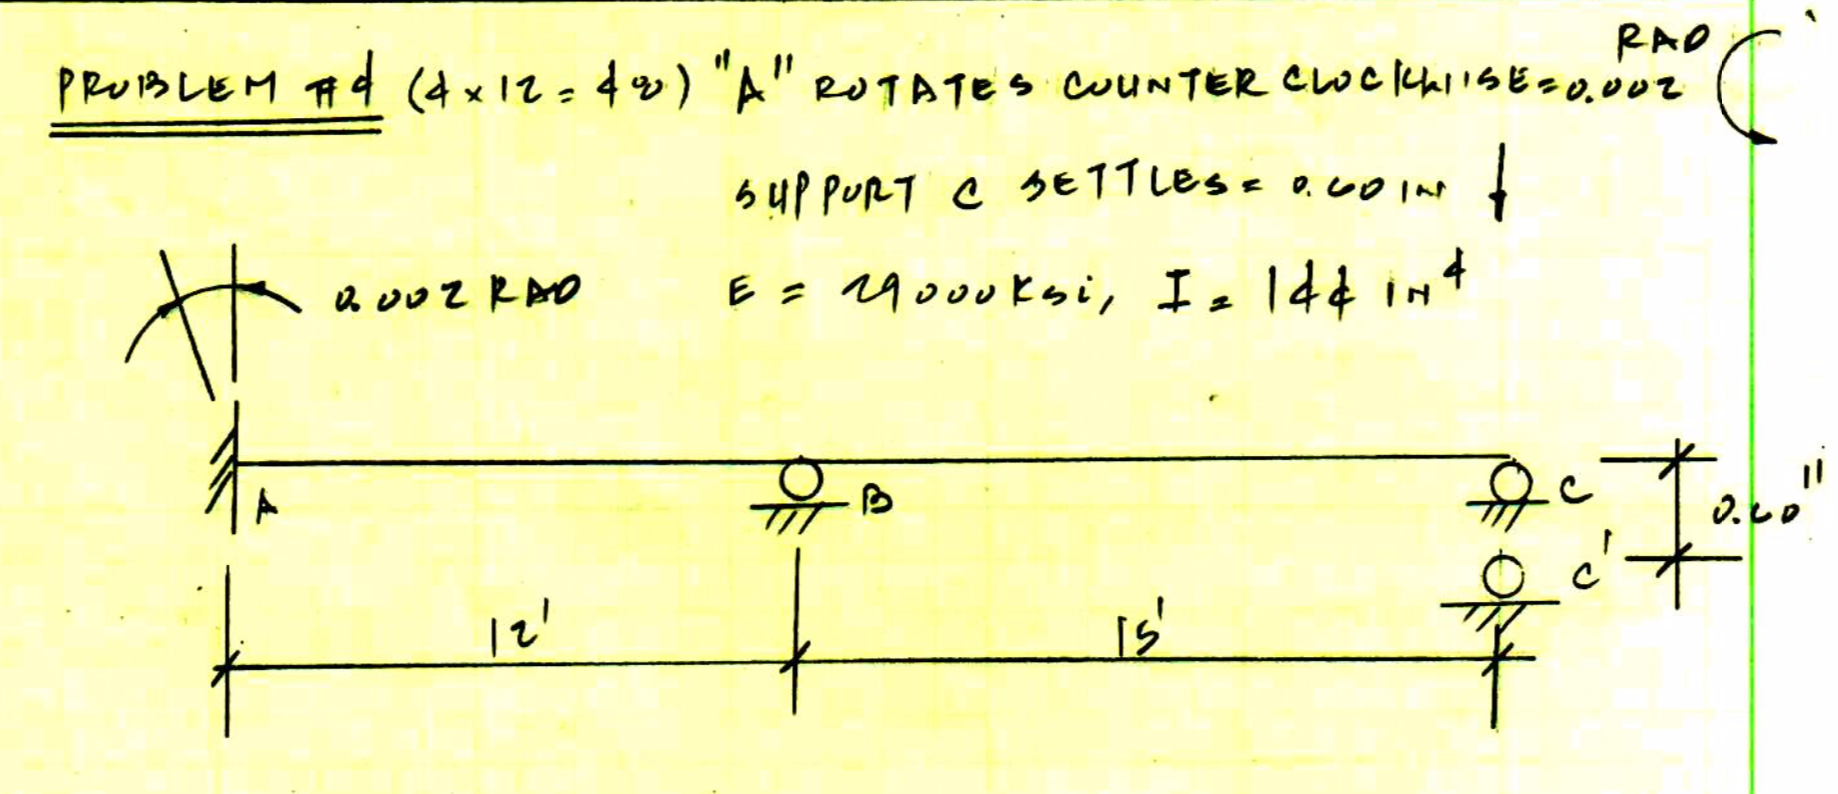 RAD
PROBLEM #4 (4 x 12 = 48) "A" ROTATES COUNTER CLOCKWISE = 0.002
SUPPORT C SETTLES = 0.60 IN
0.002 RAD
E = 29000 Ksi, I = 144 IN⁴
A
B
C
0.60"
C'
12'
15'